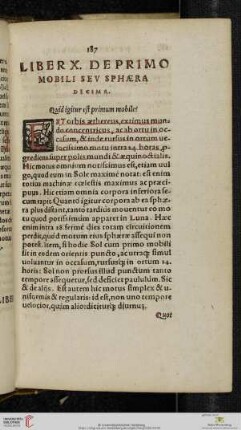 187
LIBER X. DE PRIMO
MOBILI SEV SPHÆRA
DECIMA.
Quid igitur est primum mobile?
EST orbis æthereus, extimus mun-
do concentricus, ac ab ortu in oc-
casum, & inde rursus in ortum ve-
locissimo motu intra 24. horas, p-
grediens super polos mundi & æquinoctialis.
Hic motus omnium notissimus est, etiam vul
go, quod eum in Sole maxime notat: est enim
totius machinæ cœlestis maximus ac præci-
puus. Hic etiam omnia corpora inferiora se-
cum rapit Quanto igitur corpora ab ea sphæ-
ra plus distant, tanto tardius mouentur eo mo
tu
quod potissimum apparet in Luna. Hæc
enim intra 28 ferme dies totam circuitionem
perdit, quid motum eius sphæræ assequi non
potest. Item, si hodie Sol cum primo mobili
sit in eodem orientis puncto, ac utraq; simul
voluantur in occasum, rursusq; in ortum 24.
horis: Sol non prorsus illud punctum tanto
tempore assequetur, sed deficiet paululum. Sic
& de aliis. Est autem hic motus simplex & u-
niformis & regularis: id est, non uno tempore
velocior, quam alio: diciturq; diurnus.
Quot